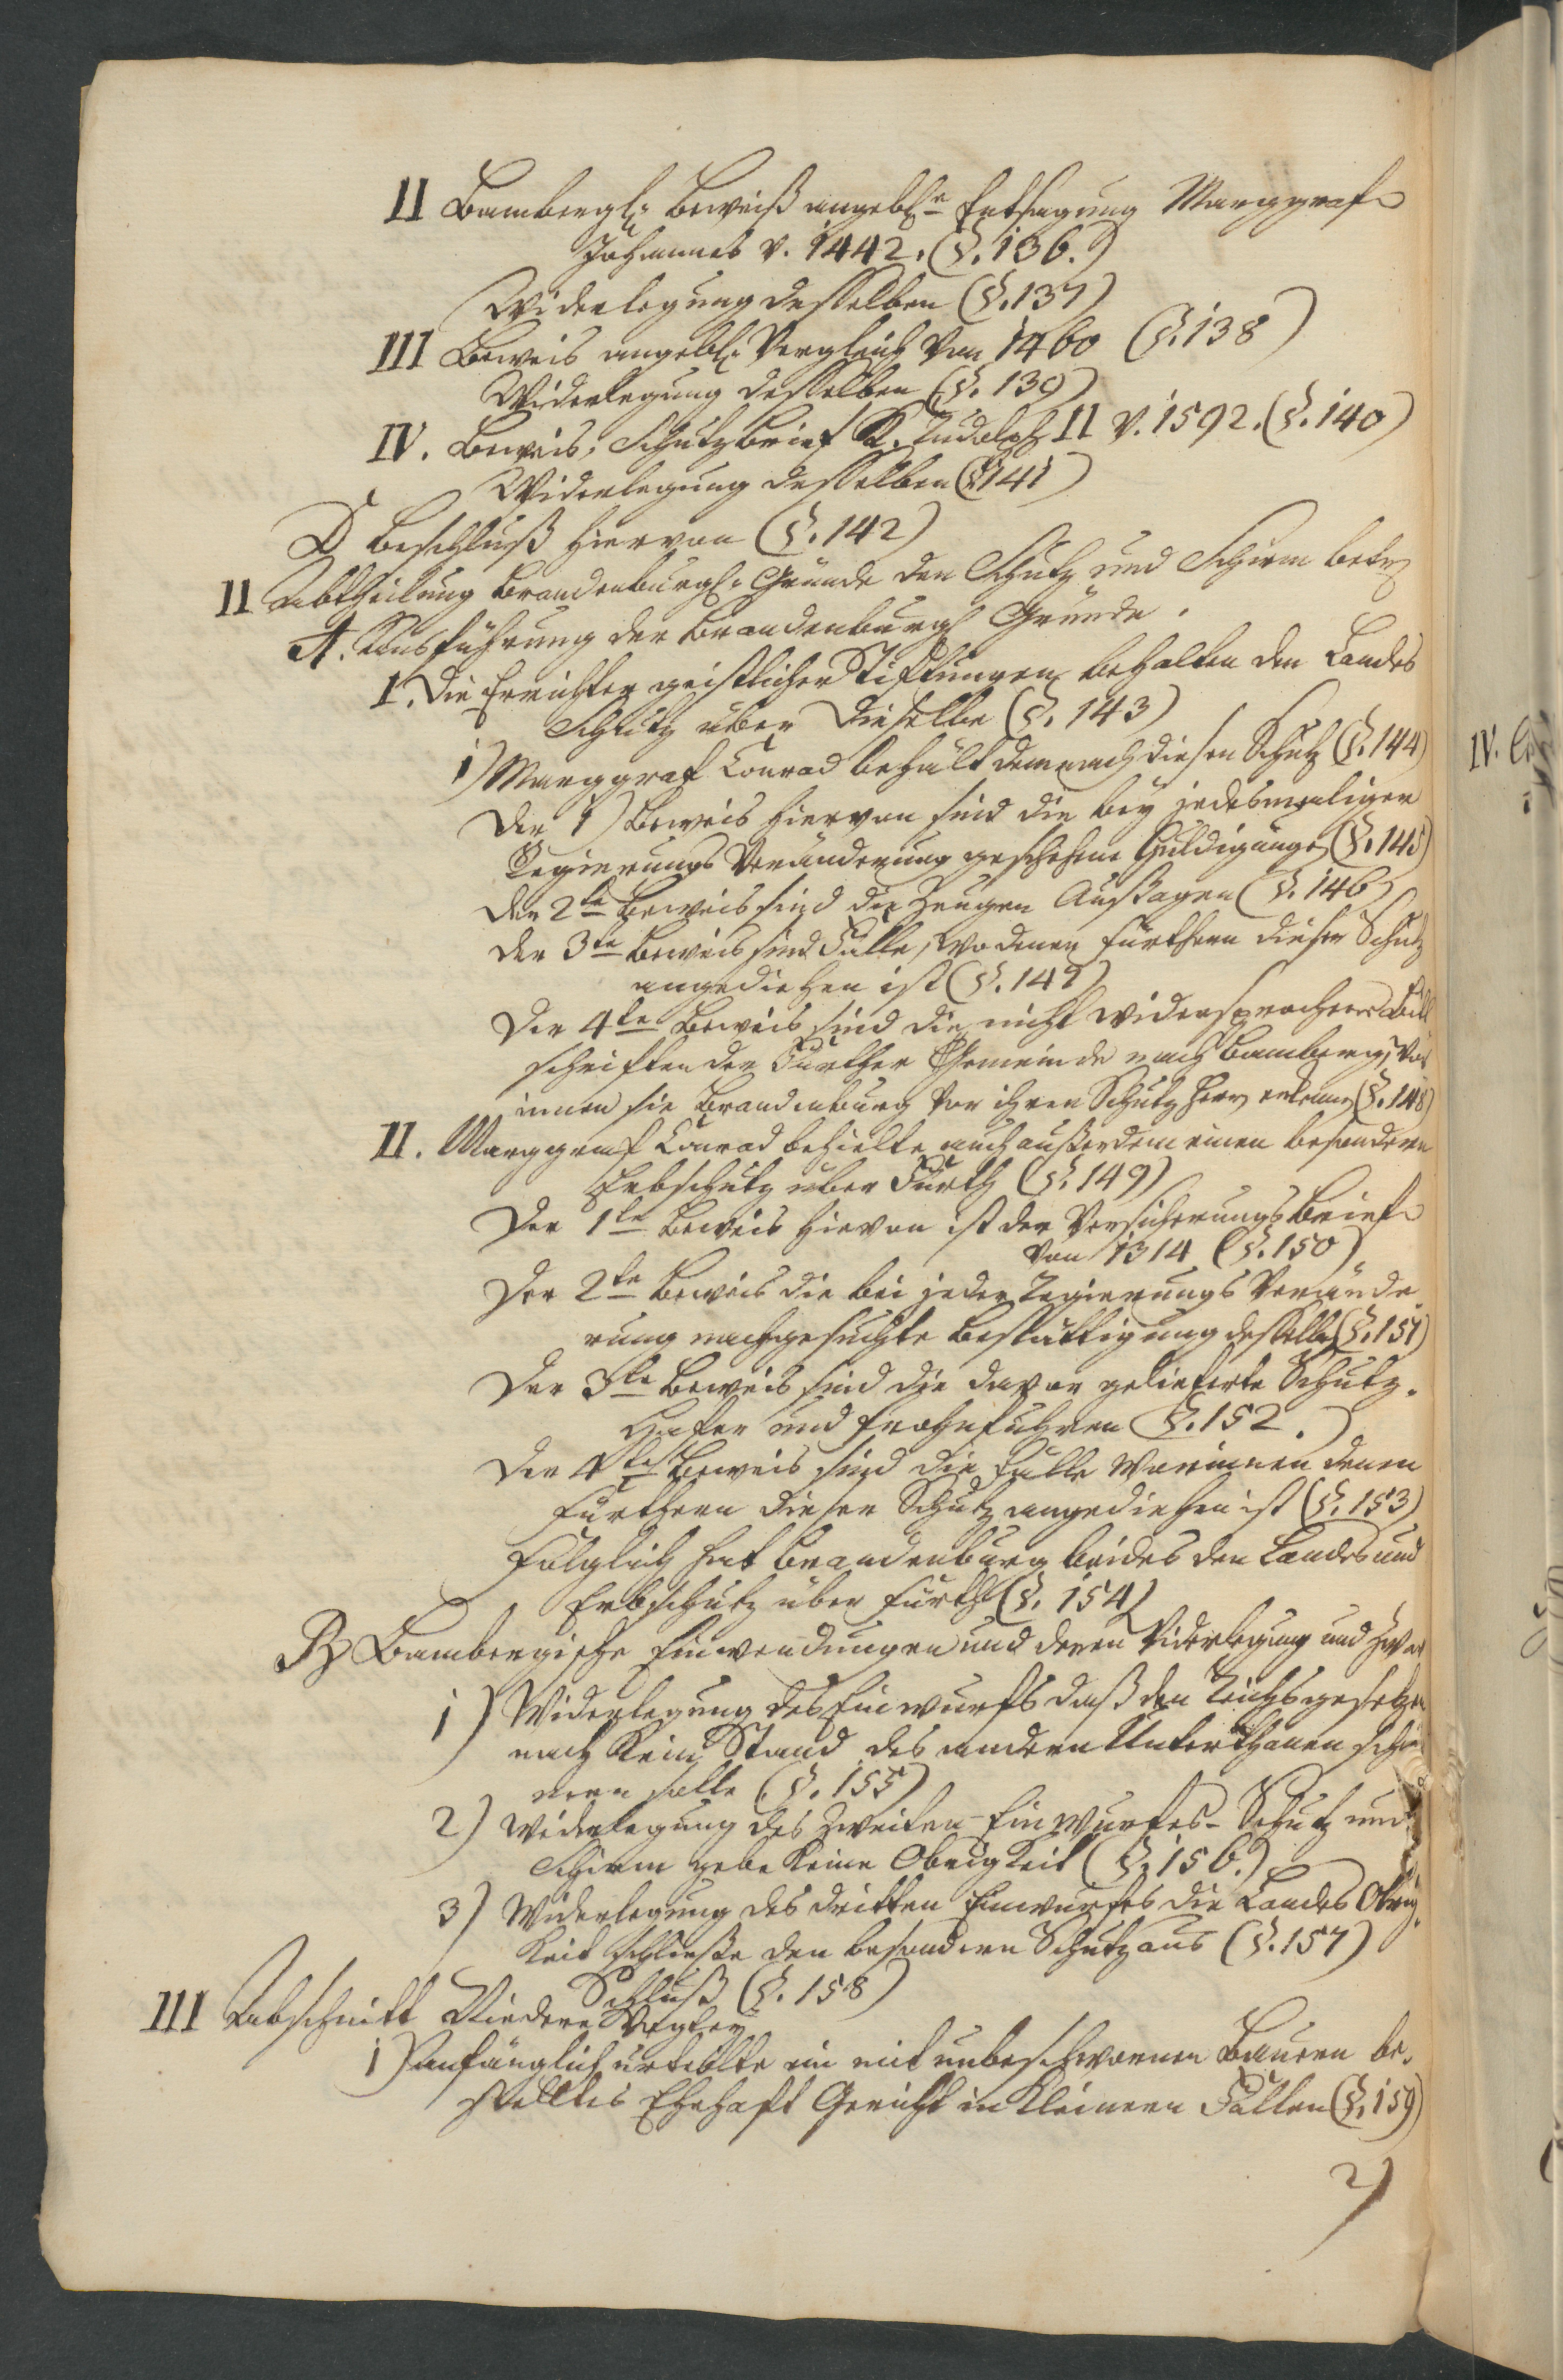 II Bambergl: Beweiß angebl:e Entsagung Marggraf
Johannes v. 1442. (§. 136.)
Widerlegung desselben (§. 137)
III Beweis angebl: Vergleich von 1460 (§. 138)
Widerlegung desselben (§. 139)
IV. Beweis, Schutzbrief K. Rudolph II v. 1592. (§. 140)
Widerlegung desselben (§ 141)
D Beschluß hiervon (§. 142)
II Abtheilung Brandenburgl: Gründe den Schutz und Schirm betr
A. Ausführung der Brandenburgl Gründe.
I. Die Errichter geistlicher Stiftungen behalten den Landes
Schutz über dieselbe (§. 143)
1) Marggraf Conrad behält demnach diesen Schutz (§. 144)
Der 1) Beweis hiervon sind die bey jedesmaliger
Regierungs Veränderung geschehene Huldigunge (§. 145)
Der 2te Beweis sind die Zeugen Aussagen (§. 146)
Der 3te Beweis sind Fälle, wo denen Fürthern dieser Schutz
angediehen ist (§. 147)
Der 4te Beweis sind die nicht widersprochene Bitt
schriften der Fürther Gemeinde nach Bamberg, wor
innen sie Brandenburg vor ihren Schutz Herrn erkennt (§. 148)
II. Marggraf Conrad behielte auch außerdem einen besondern
Erbschutz über Fürth (§. 149)
Der 1te Beweis hievon ist der Versicherungs Brief
von 1314 (§. 150)
Der 2te Beweis die bei jeder Regierungs Verände
rung nachgesuchte Bestättigung desselben (§. 151)
Der 3te Beweis sind die davon gelieferte Schutz.
Hafer und Frohnfuhren (§. 152.)
Der 4te Beweis sind die Fälle worinnen denen
Fürthern dieser Schutz angediehen ist (§. 153)
Folglich hat Brandenburg beides den Landes und
Erbschutz über Fürth (§. 154)
B Bambergische Einwendungen und deren Widerlegung und zwar
1) Widerlegung des Einwurfs daß den Reichsgesetzen
nach kein Stand des andern Unterthanen schir
men solle (§. 155)
2) Widerlegung des zweiten Einwurfes Schutz und
Schirm gebe keine Obrigkeit (§. 156.)
3) Widerlegung des dritten Einwurfes die Landes Obrig.
keit schließe den besondern Schutz aus (§. 157)
Schluß (§. 158)
III Abschnitt Niedere Vogtey
1) Anfänglich urteilte ein mit unbeschwornen Bauern be.
stelltes Ehehaft Gericht in kleinern Fällen (§. 159)
2)
IV.